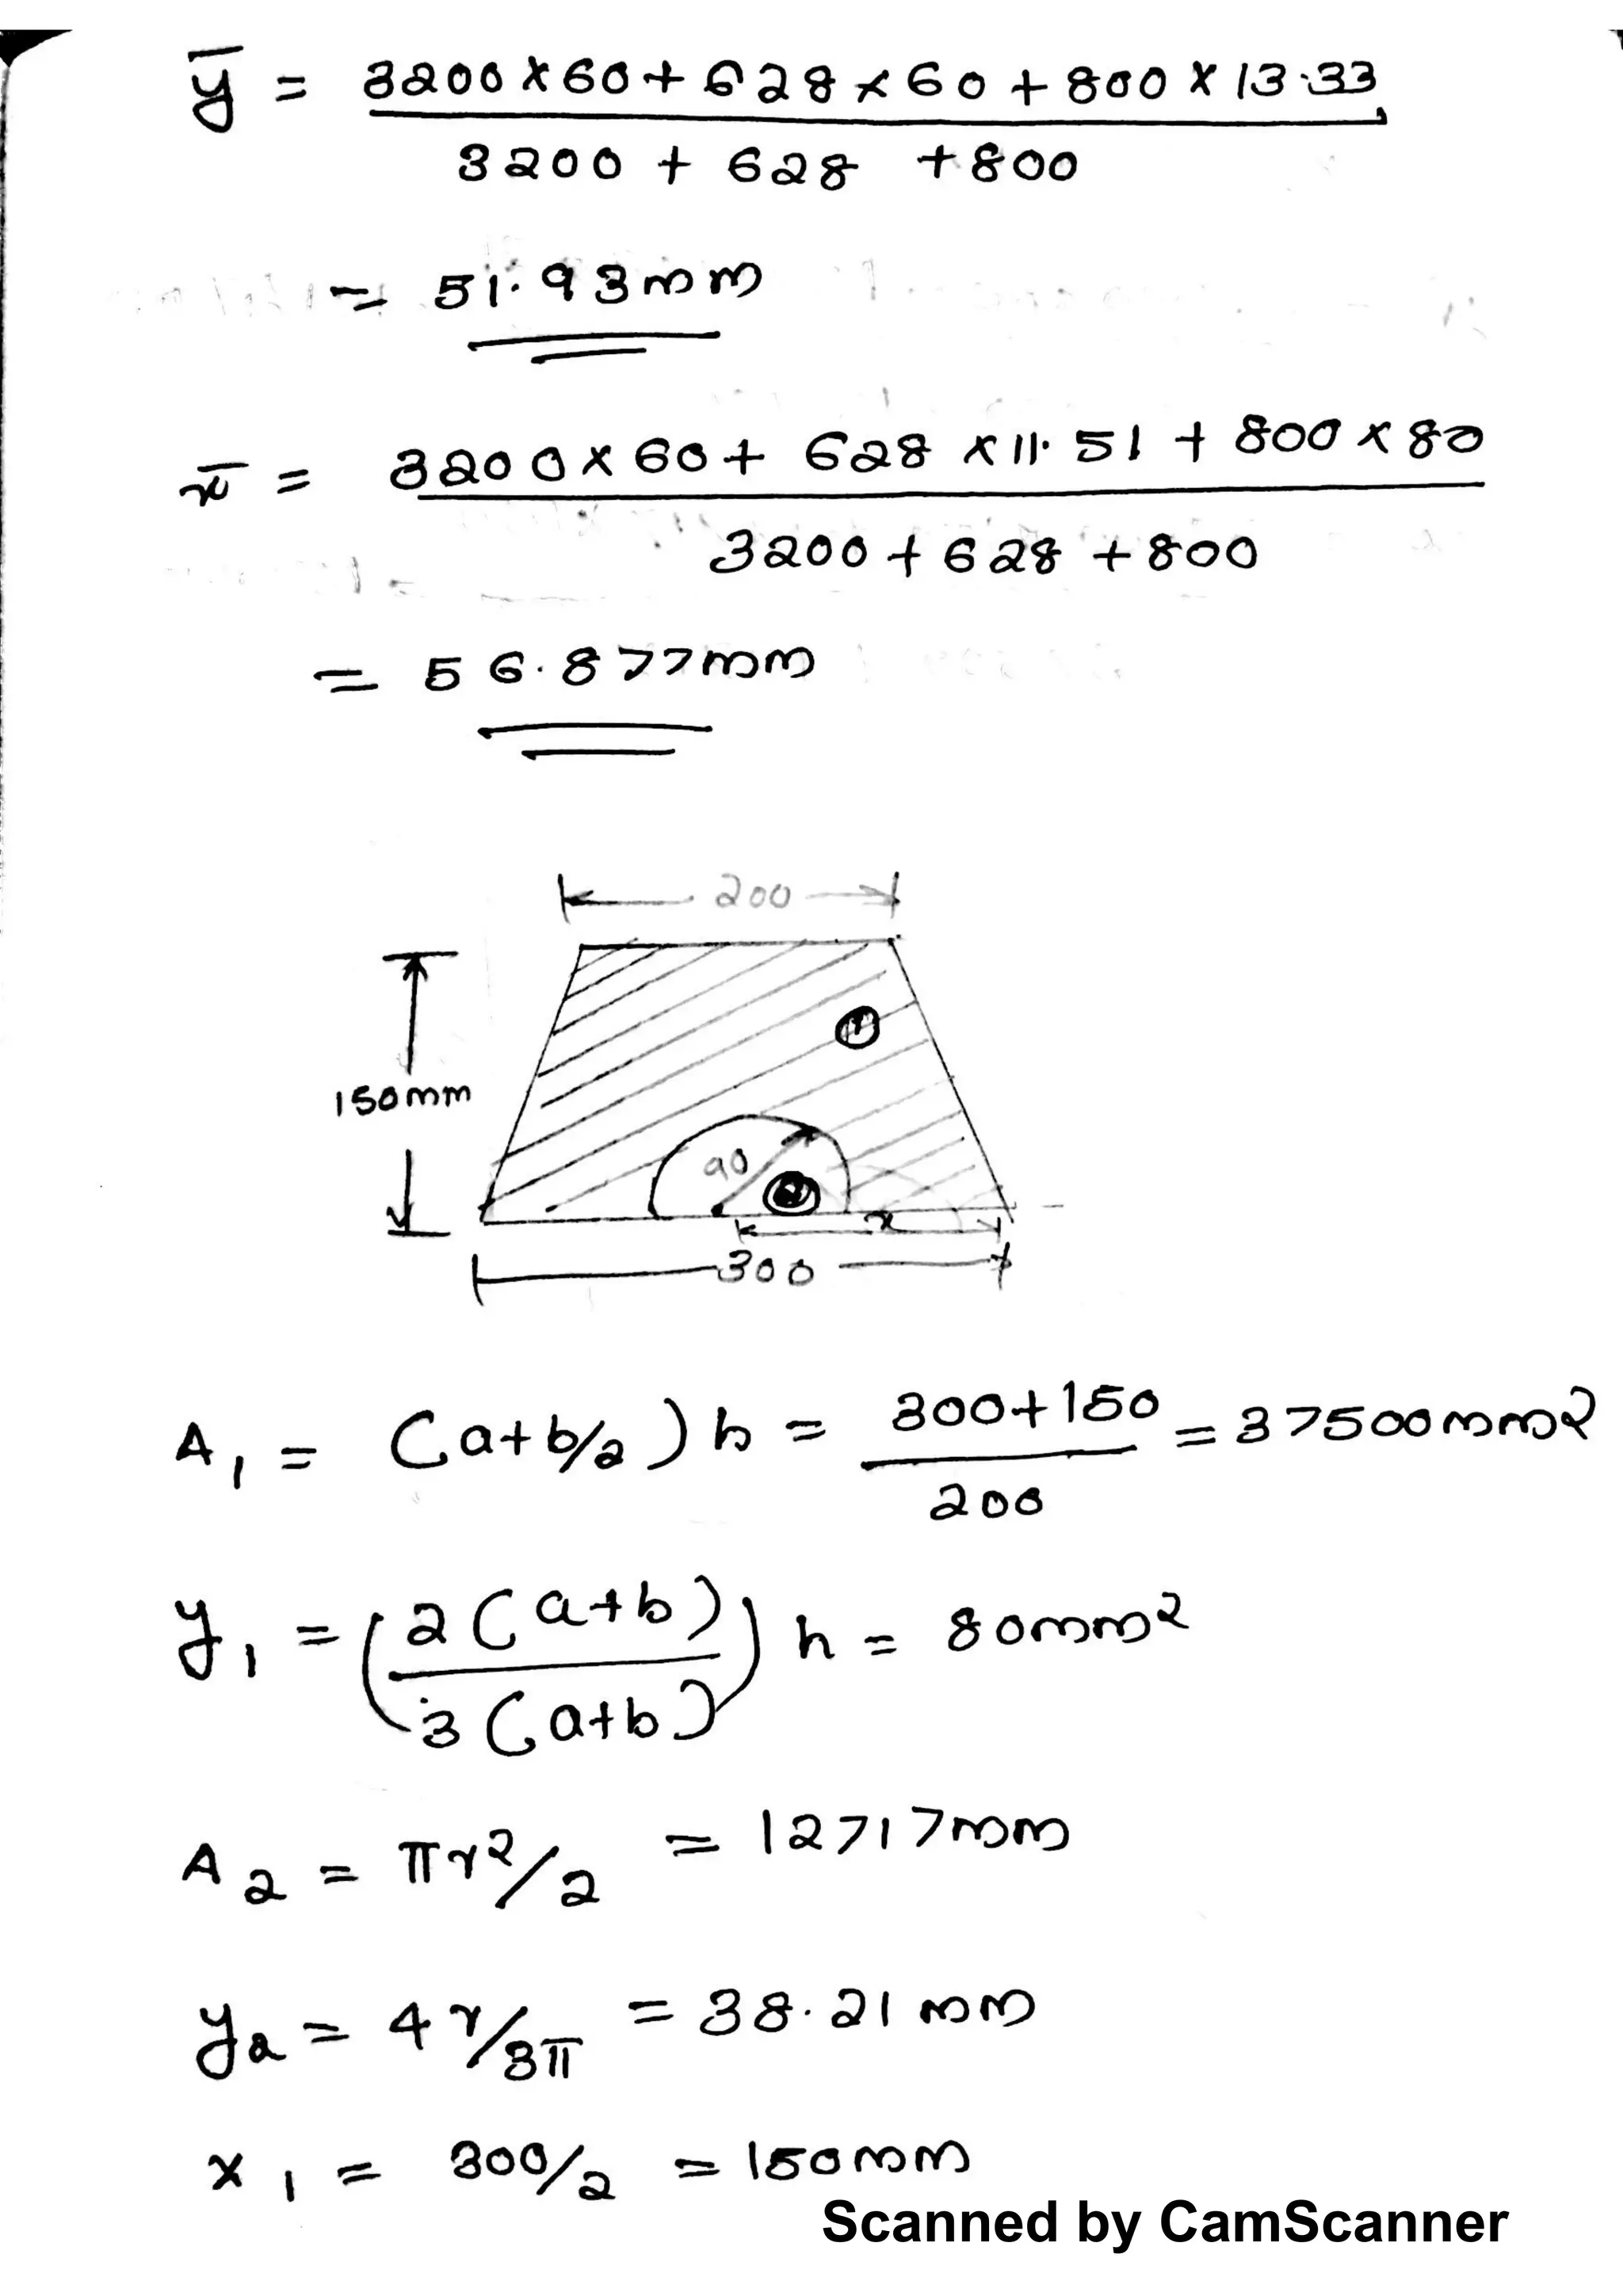 ȳ = 3200 x 60 + 628 x 60 + 800 x 13.33
3200 + 628 + 800
= 51.93mm
x̄ = 3200 x 60 + 628 x 11.51 + 800 x 80
3200 + 628 + 800
= 56.877mm
200
1
150mm
90
2
x
300
A1 = (a+b/2)h = 300+150 = 37500mm²
200
y1 = (2(a+b) / 3(a+b)) h = 80mm²
A2 = πr²/2 = 12717mm
y2 = 4r/3π = 38.21mm
x1 = 300/2 = 150mm
Scanned by CamScanner